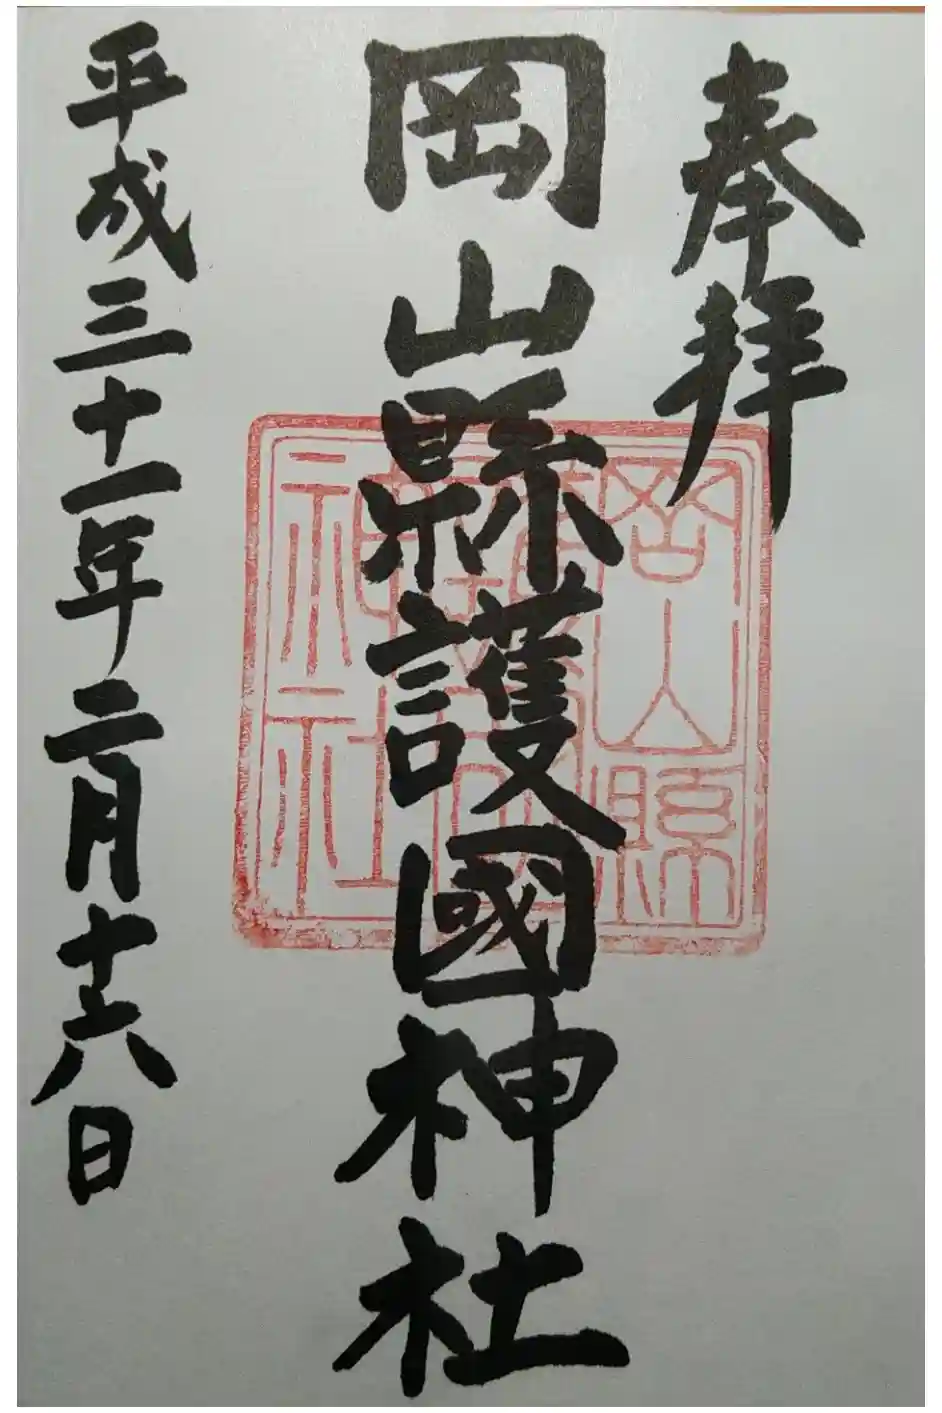 奉拝
岡山縣護國神社
岡山縣護國神社
平成三十一年二月十六日